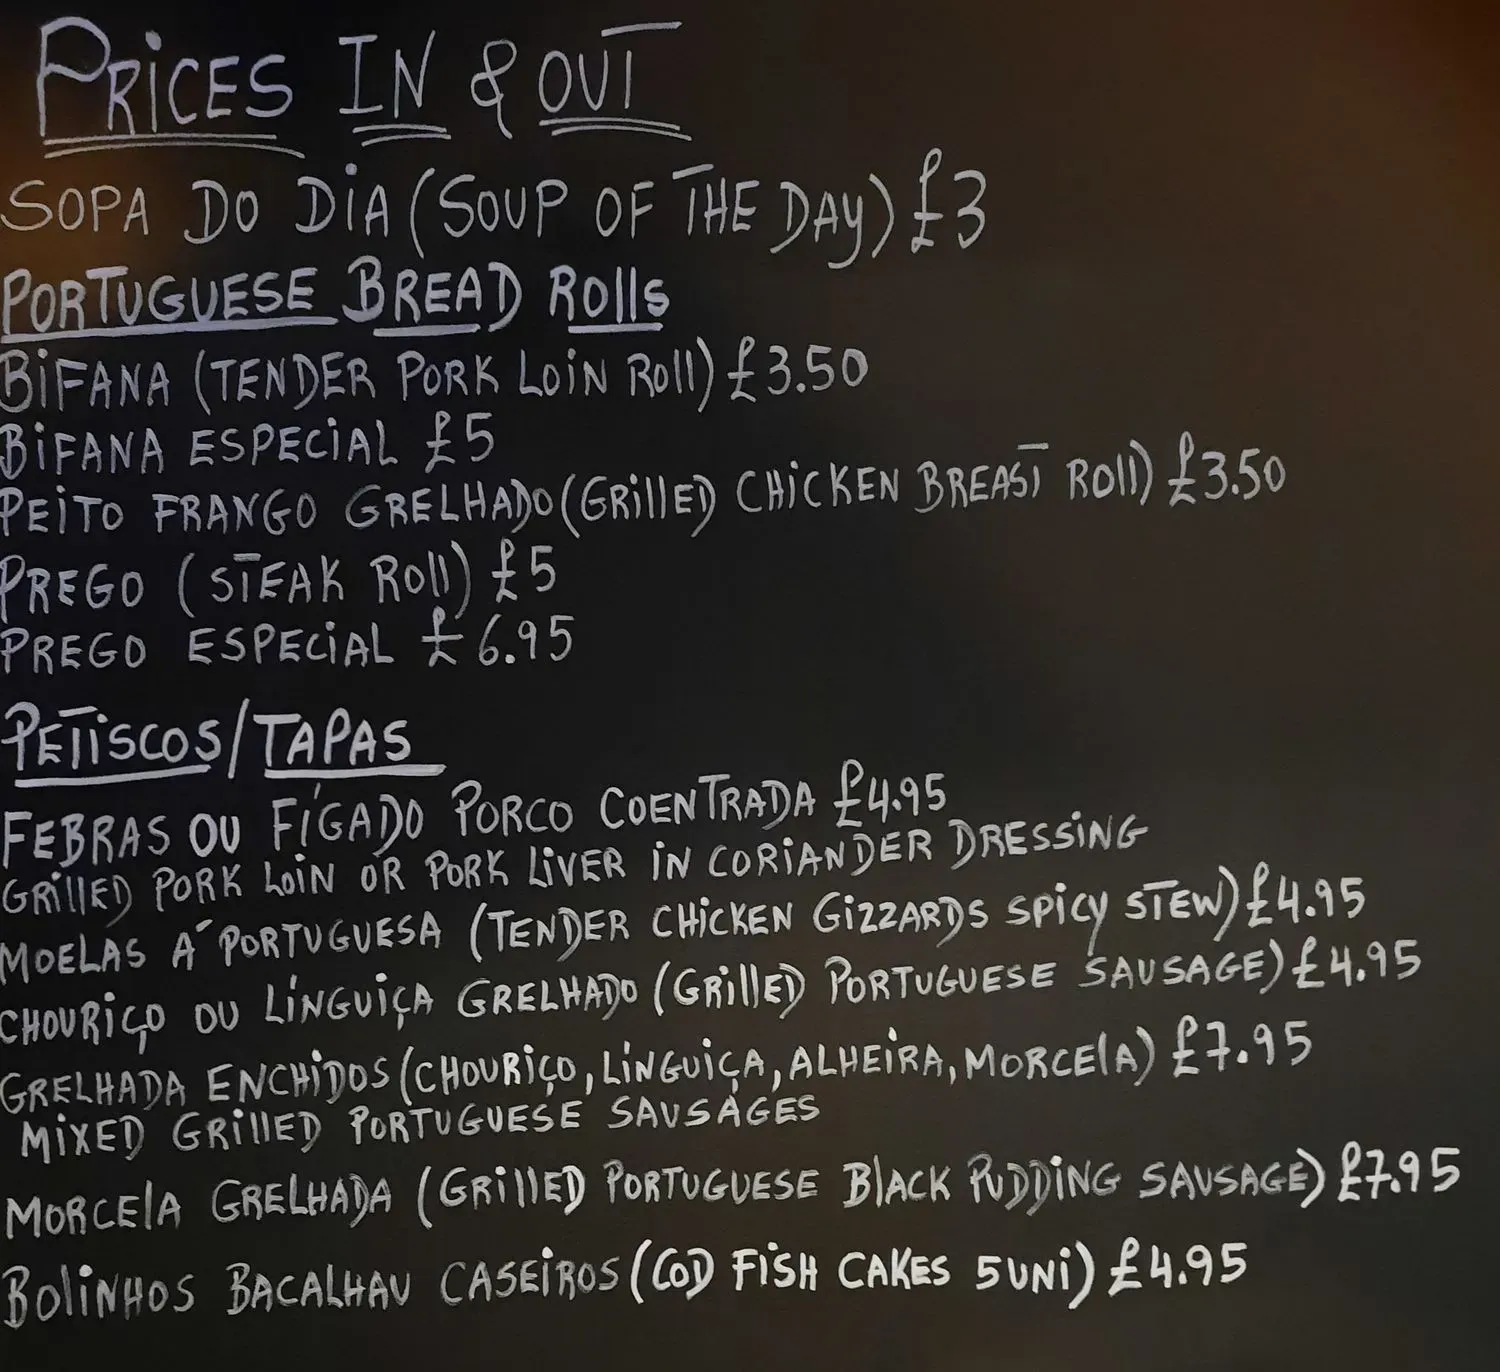 PRICES IN & OUT
SOPA DO DIA (SOUP OF THE DAY) £3
PORTUGUESE BREAD ROllS
BIFANA (TENDER PORK LOIN ROll) £3.50
BIFANA ESPECIAL £5
PEITO FRANGO GRELHADO (GRIllED CHICKEN BREAST ROll) £3.50
PREGO (STEAK ROll) £5
PREGO ESPECIAL £6.95
PETISCOS/TAPAS
FEBRAS OU FÍGADO PORCO COENTRADA £4.95
GRIllED PORK LOIN OR PORK LIVER IN CORIANDER DRESSING
MOELAS A´ PORTUGUESA (TENDER CHICKEN GIZZARDS SPICY STEW) £4.95
CHOURIÇO OU LINGUIÇA GRELHADO (GRIllED PORTUGUESE SAUSAGE) £4.95
GRELHADA ENCHIDOS (CHOURIÇO, LINGUIÇA, ALHEIRA, MORCElA) £7.95
MIXED GRIllED PORTUGUESE SAUSAGES
MORCElA GRELHADA (GRIllED PORTUGUESE BlACK PUDDING SAUSAGE) £7.95
BOlINHOS BACALHAU CASEIROS (COD FISH CAKES 5UNI) £4.95